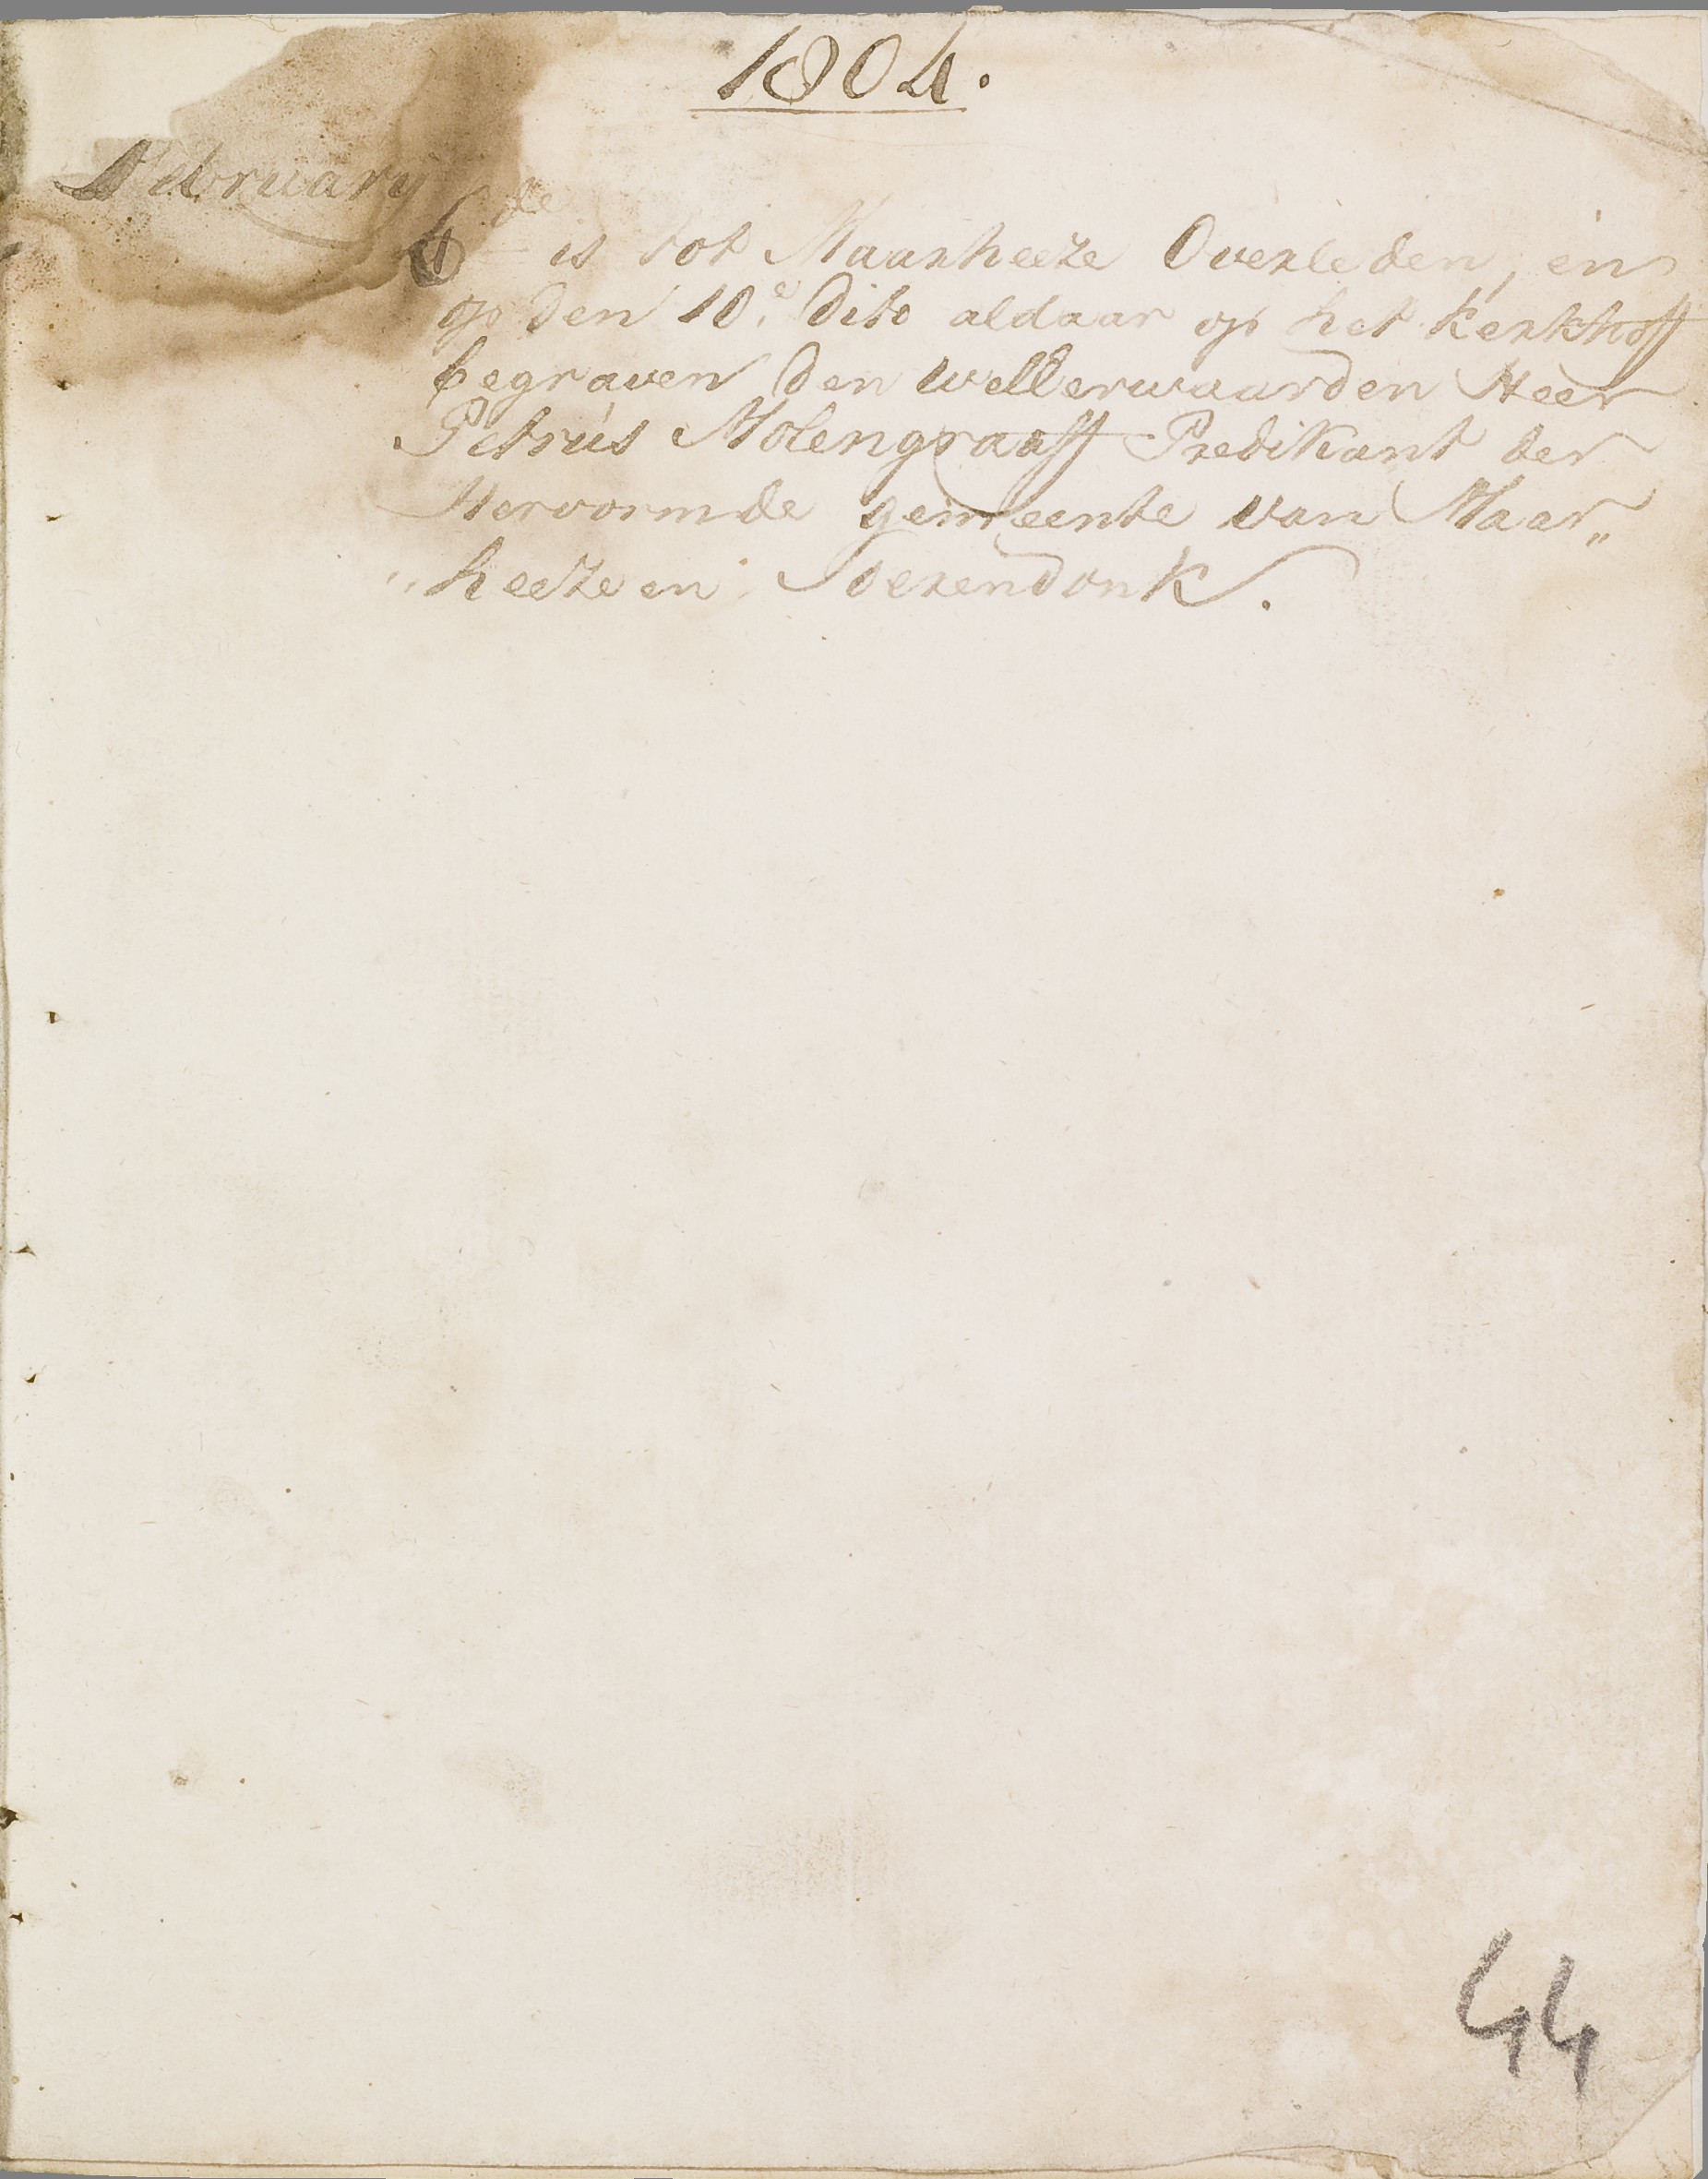 1804.
February
6de is tot Maarheeze Overleden, en
op den 10e. Dito aldaar op het kerkhoff
begraven den welEerwaarden Heer
Petrus Molengraaff Predikant der
Hervormde gemeente van Maar„
„heeze en Soerendonk.
44